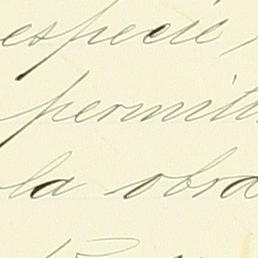 especie
permita
la obra